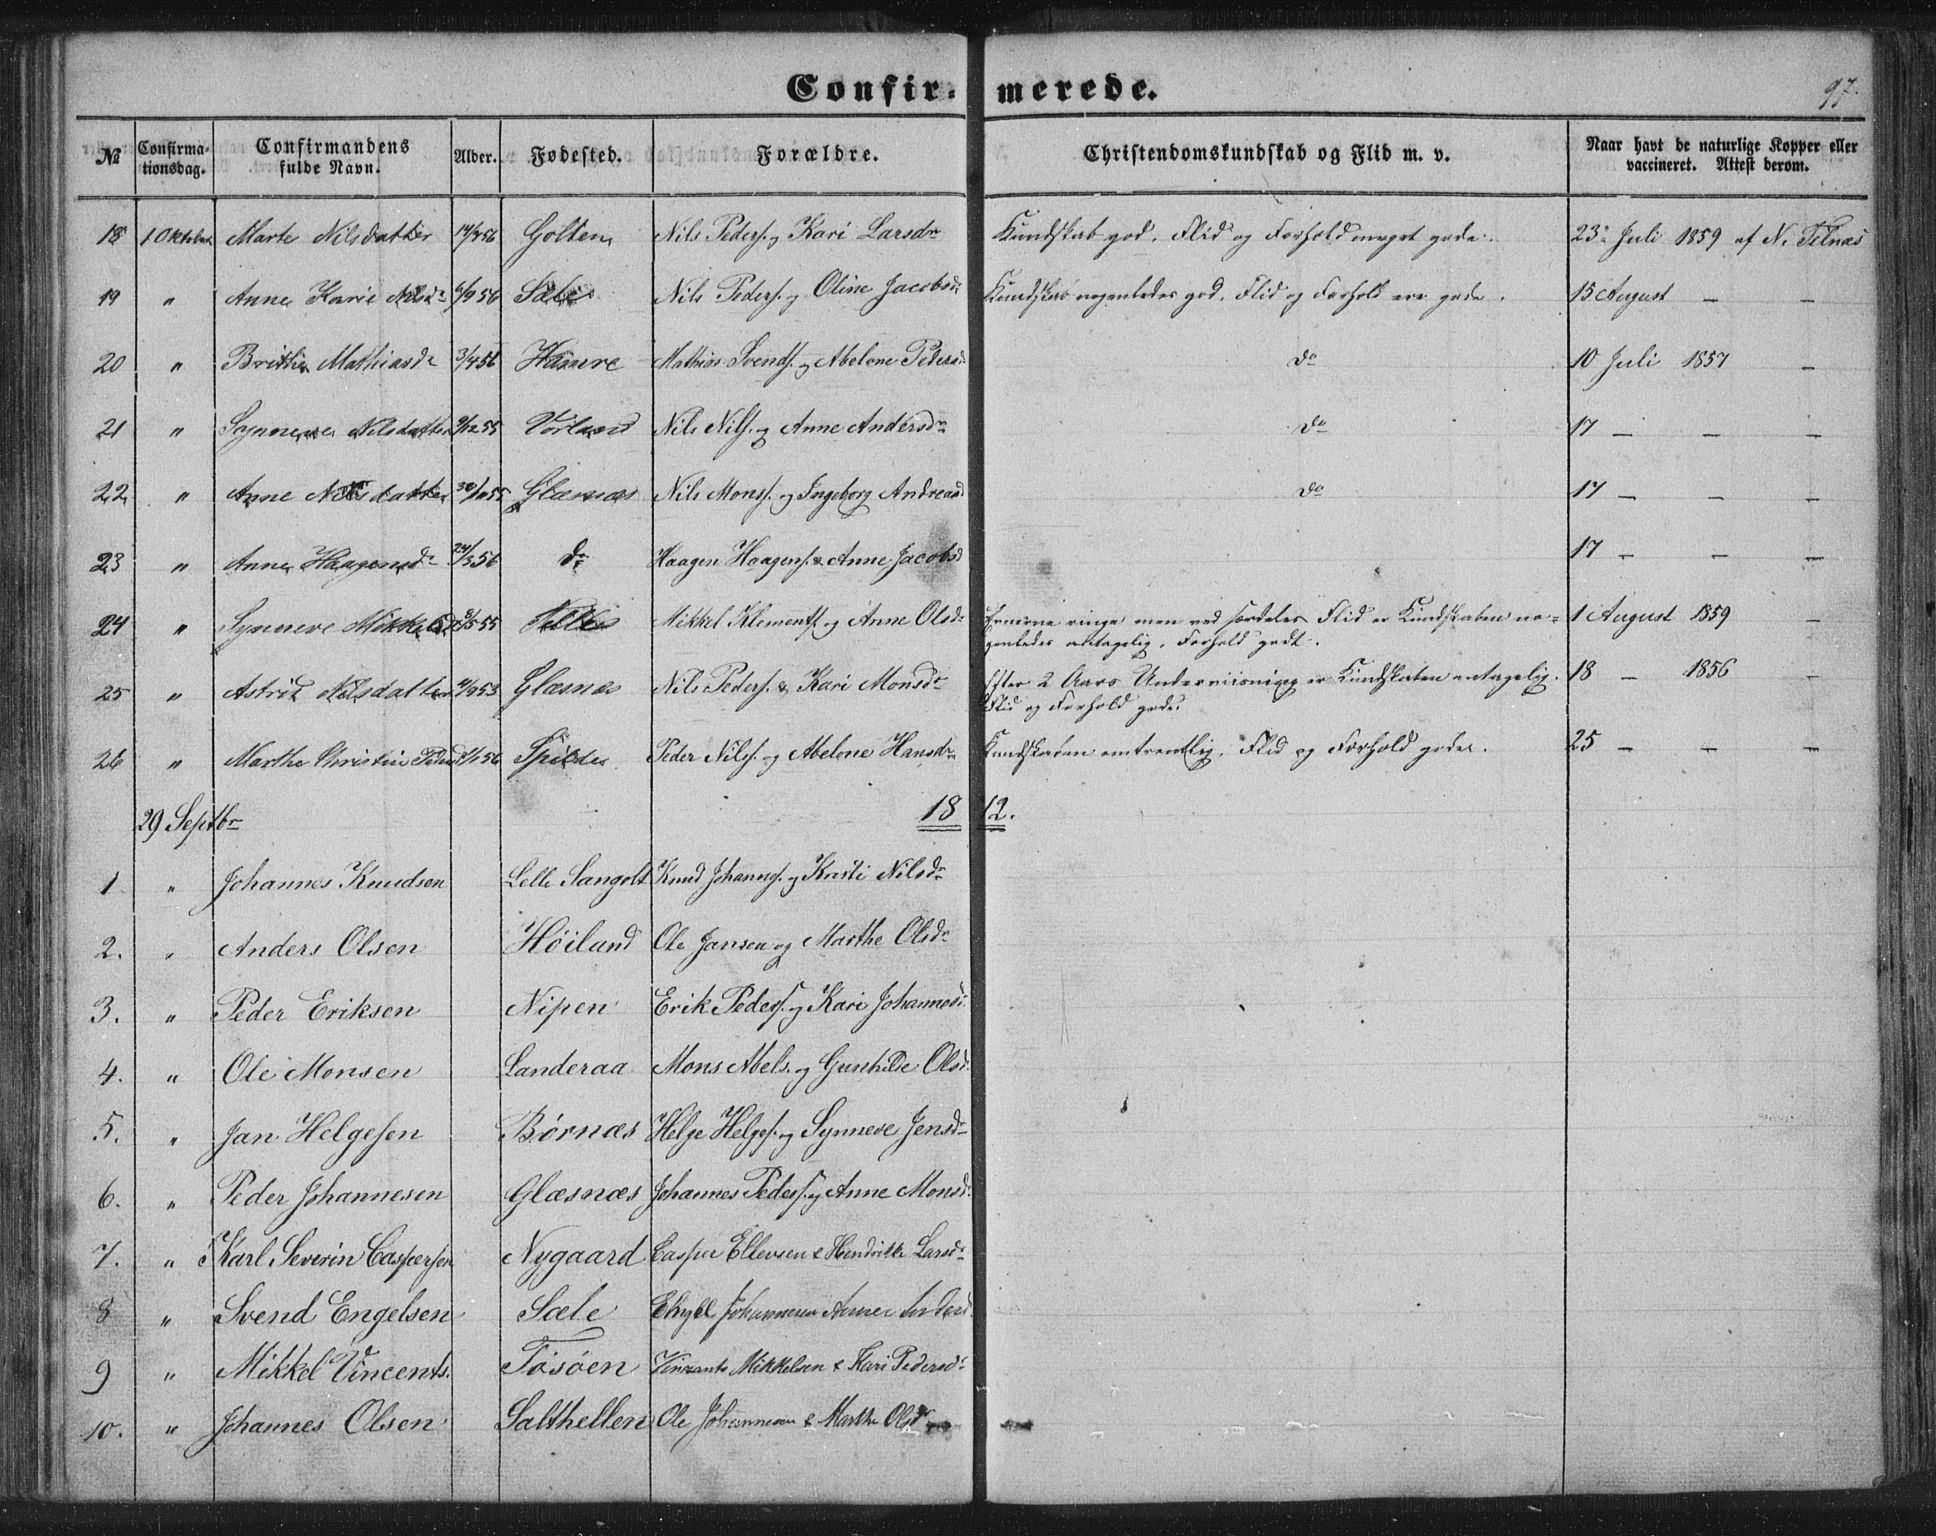 Confir- merede.
97.
№ Confirma-tionsdag. Confirmandens fulde Navn. Alder. Fødested. Forældre. Christendomskundskab og Flid m. v. Naar havt de naturlige Kopper eller vaccineret. Attest derom.
18 1 Oktober Marte Nilsdatter 14/4 56 Golten Nils Peders. og Kari Larsdr Kundskab god, Flid og Forhold meget gode. 23 Juli 1859 af N. Telnæs
19 " Anne Karie Nilsdr 6/9 56 Sæle Nils Peders. og Oline Jacobsdr Kundskab nogenledes god, Flid og Forhold ere gode. 15 August — —
20 " Brithe Mathiasdr 3/4 56 Hamre Mathias Svends. og Abelone Pedersd do 10 Juli 1857 —
21 " Synneve Nilsdatter 9/12 55 Vorland Nils Nils. og Anne Andersdr do 17 — — —
22 " Anne Nilsdatter 30/11 55 Glæsnæs Nils Mons. og Ingeborg Andreasd do 17 — — —
23 " Anne Haagensdr 24/3 56 dr Haagen Haagens. & Anne Jacobsd 17 — — —
24 " Synneve Mikkelsd 55 Mikkel Klements. og Anne Olsdr Evnerne ringe men ved særdeles Flid er Kundskaben no-
genledes antagelig, Forhold godt. 1 August 1859 —
25 " Astrid Nilsdatter 4/9 53 Glæsnæs Nils Peders. & Kari Monsdr Efter 2 Aars Underviisning er Kundskaben antagelig.
Flid og Forhold gode. 18 — 1856 —
26 " Marthe Christin Peder 56 Spilde Peder Nils. og Abelone Hansdr Kundskaben omtrentlig, Flid og Forhold godes. 25 — — —
29 Septbr 18 72.
1 " Johannes Knudsen Lelle Sangolt Knud Johanns. og Kristi Nilsdr
2. " Anders Olsen Høiland Ole Jansen og Marthe Olsdr
3. " Peder Eriksen Nipen Erik Peders. og Kari Johannesd
4. " Ole Monsen Landeraa Mons Abels. og Gunhilde Olsd.
5. " Jan Helgesen Børnæs Helge Helges. og Synneve Jensdr
6. " Peder Johannesen Glæsnæs Johannes Peders. og Anne Monsd.
7. " Karl Severin Caspersen Nygaard Casper Ellevsen & Hendrikke Larsdr
8 " Svend Engelsen Sæle Engel Johannesen Anne Andersd.
9 " Mikkel Vincents. Tøsøen Vinzents Mikkelsen & Kari Pedersdr
10. " Johannes Olsen Salthellen Ole Johannesen & Marthe Olsdr